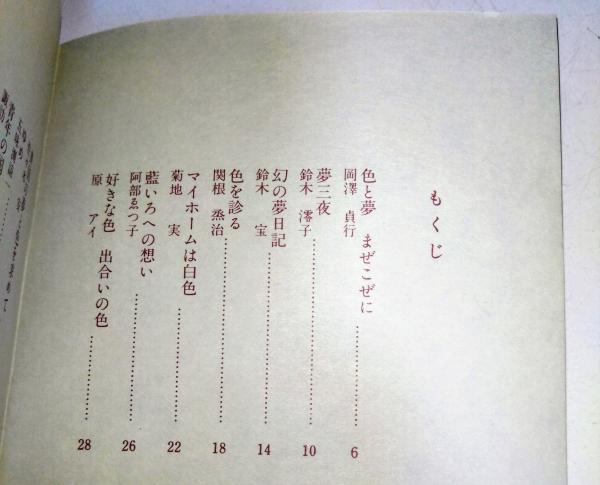 もくじ
色と夢　まぜこぜに
岡澤　貞行 6
夢三夜
鈴木　澪子 10
幻の夢日記
鈴木　宝 14
色を診る
関根　烝治 18
マイホームは白色
菊地　実 22
藍いろへの想い
阿部ゑつ子 26
好きな色　出合いの色
原　アイ 28